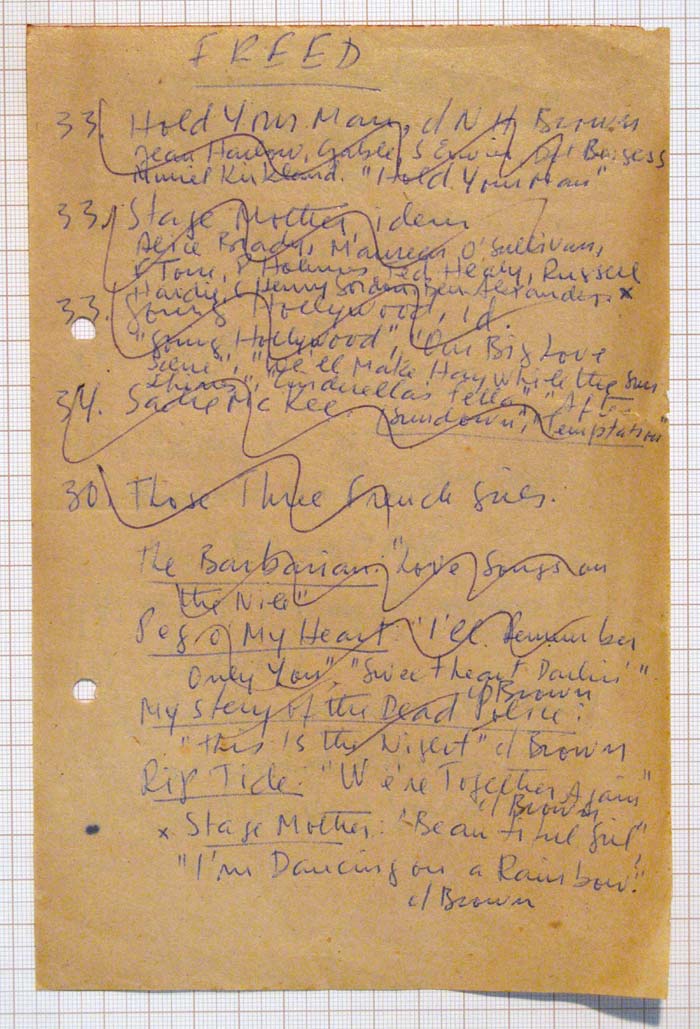 FREED
33. Hold Your Man, c/ N H Brown
Jean Harlow, Gable, S Erwin, Dot Burgess
Muriel Kirkland. "Hold Your Man"
33. Stage Mother, idem
Alice Brady, Maureen O'Sullivan,
F Tone, P Holmes, Ted Healy, Russell
Hardie, C Henry Gordon, Ben Alexander. x
33. Going Hollywood, id.
"Going Hollywood", "Our Big Love
Scene", "We'll Make Hay While the Sun
Shines", "Cinderella's Fella" "After
34. Sadie McKee Sundown", "Temptation"
30. Those Three French Girls.
The Barbarian: "Love Songs on
the Nile"
Peg o' My Heart: "I'll Remember
Only You", "Sweetheart Darlin'"
c/ Brown
My Story of the Dead Police:
"This Is the Night" c/ Brown
Rip Tide: "We're Together Again"
c/ Brown
x Stage Mother: "Beautiful Girl"
"I'm Dancing on a Rainbow."
c/ Brown